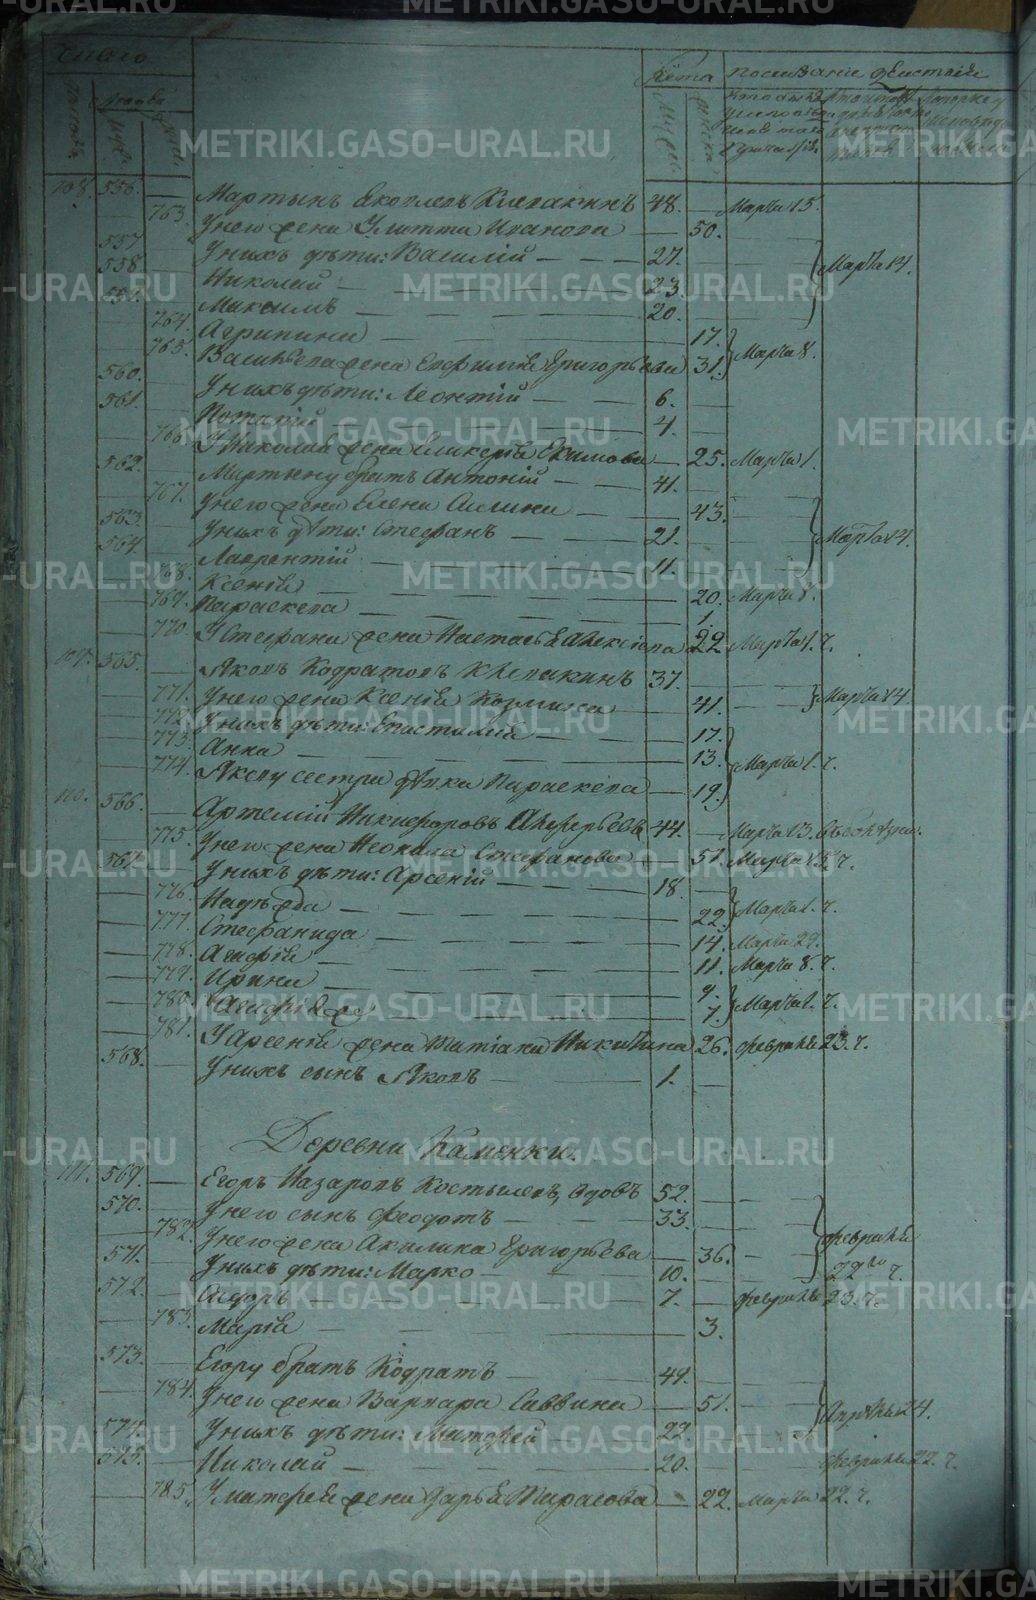 METRIKI.GASO-URAL.RU
Число
Лѣта
108. 556. Мартынъ Яковлевъ Клепакинъ 48. Марта 15.
763. У него жена Улитта Иванова 50.
557. У нихъ дѣти: Василій 27. Марта 14.
558. Николай 23.
559. Максимъ 20.
764. Агрипина 17. Марта 8.
765. Васильева жена Евфимія Григорьева 31.
560. У нихъ дѣти: Леонтій 6.
561. Потапій 4.
766. У Николая жена Гликерія Екимова 25. Марта 1.
562. Мартыну братъ Антоній 41.
767. У него жена Елена 43.
563. У нихъ дѣти: Стефанъ 21. Марта 14.
564. Лаврентій 11.
768. Ксенія 20. Марта 8.
769. Параскева 1.
770. У Стефана жена Настасья Алексіева 22 Марта 1. ч.
109. 565. Яковъ Кодратовъ Клепакинъ 37.
771. У него жена Ксенія Козмина 41. Марта 14.
772. У нихъ дѣти: 17.
773. Анна 13. Марта 1. ч.
774. Якову сестра дѣвка Параскева 19.
110. 566. Артемій Никифоровъ 44. Марта 13.
775. У него жена Неонила Стефанова 51. Марта 15 ч.
567. У нихъ дѣти: Арсеній 18.
776. Надежда 22. Марта 1. ч.
777. Стефанида 14. Марта 29.
778. Агафія 11. Марта 8. ч.
779. Ирина 9. Марта 1. ч.
780. Агафія же 7.
781. У Арсенія жена Татіана Никитина 26. февраля 23. ч.
568. У нихъ сынъ Яковъ 1.
Деревни Каменки.
111. 569. Егоръ Назаровъ Костылевъ, вдовъ 52.
570. У него сынъ Феодотъ 33.
782. У него жена Акилина Григорьева 36. февраля
571. У нихъ дѣти: Марко 10. 22го ч.
572. Сидоръ 7. февраля 23. ч.
783. Марія 3.
573. Егору братъ Кодратъ 49.
784. У него жена Варвара Саввина 51.
574. У нихъ дѣти: Матфей 22. Апрѣля 24.
575. Николай 20. февраля 22. ч.
785. У Матфея жена Дарья Тарасова 22. Марта 22. ч.